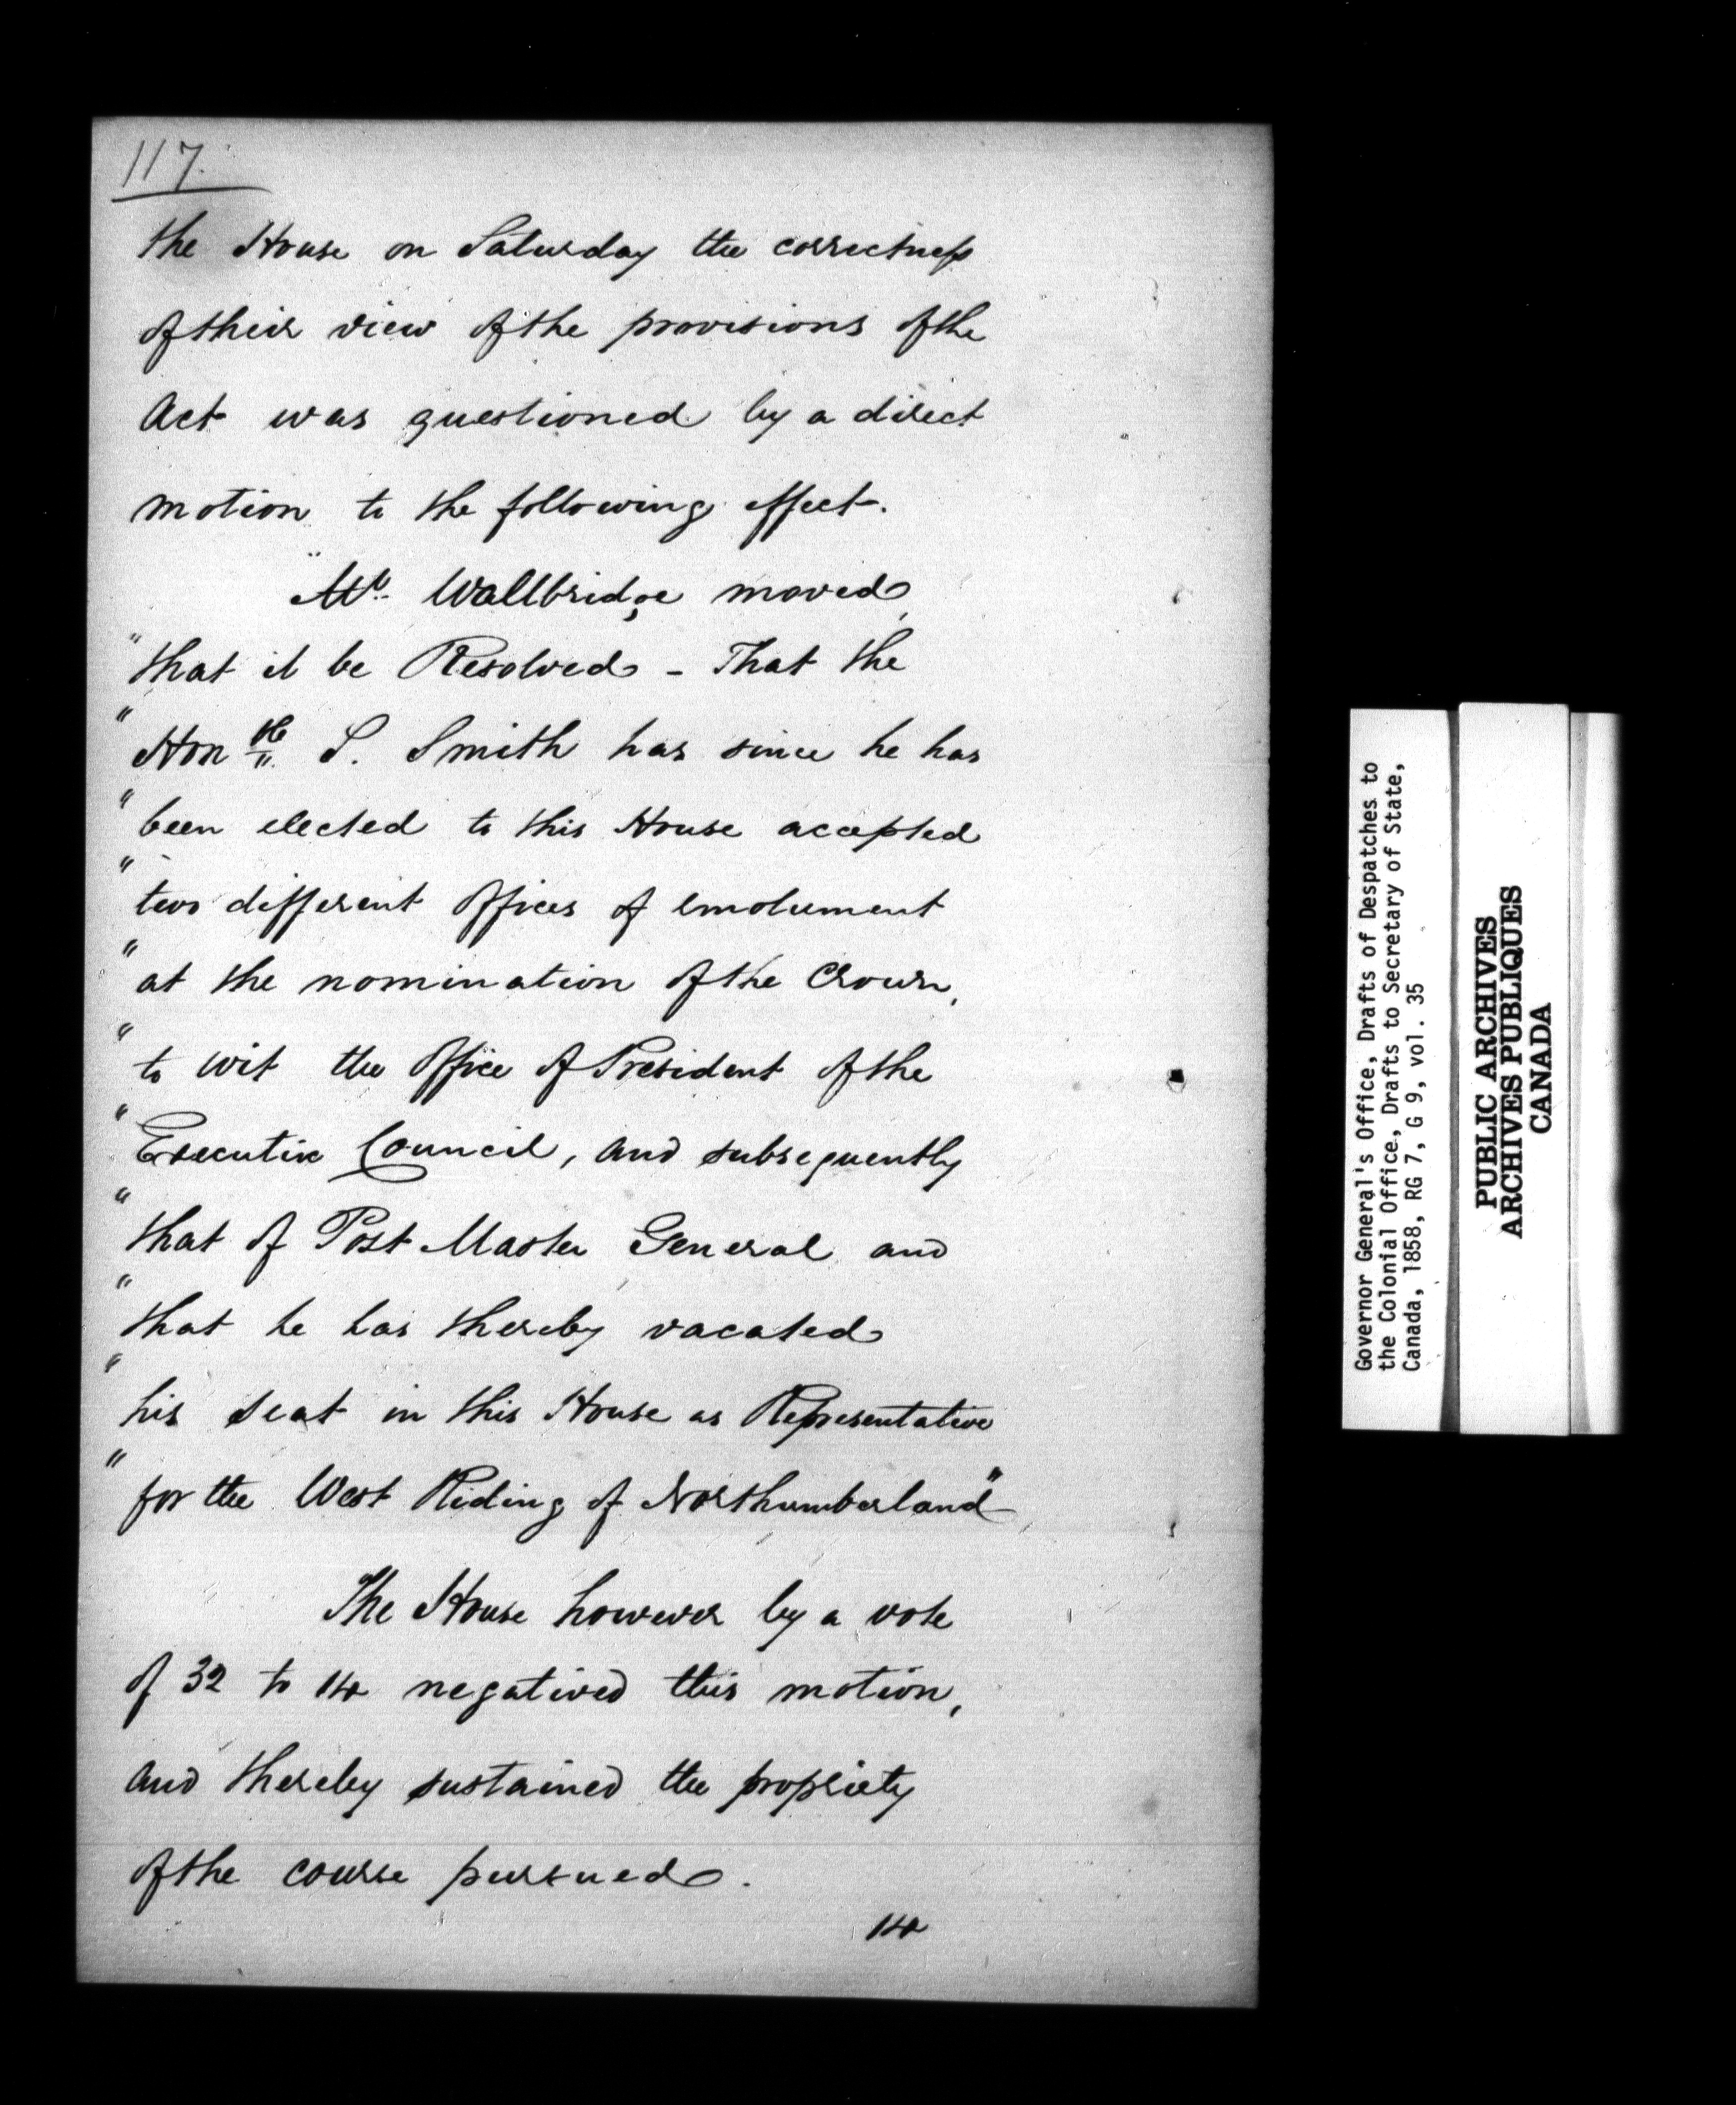 117.
the House on Saturday the correctness
of their view of the provisions of the
Act was questioned by a direct
motion to the following effect.
"Mr. Wallbridge moved,
"that it be Resolved - That the
"Honble S. Smith has since he has
"been elected to this House accepted
"two different Offices of emolument
"at the nomination of the Crown,
"to wit the Office of President of the
"Executive Council, and subsequently
"that of Post Master General and
"that he has thereby vacated
"his seat in this House as Representative
"for the West Riding of Northumberland"
The House however by a vote
of 32 to 14 negatived this motion,
and thereby sustained the propriety
of the course pursued.
14
Governor General's Office, Drafts of Despatches to
the Colonial Office, Drafts to Secretary of State,
Canada, 1858, RG 7, G 9, vol. 35
PUBLIC ARCHIVES
ARCHIVES PUBLIQUES
CANADA